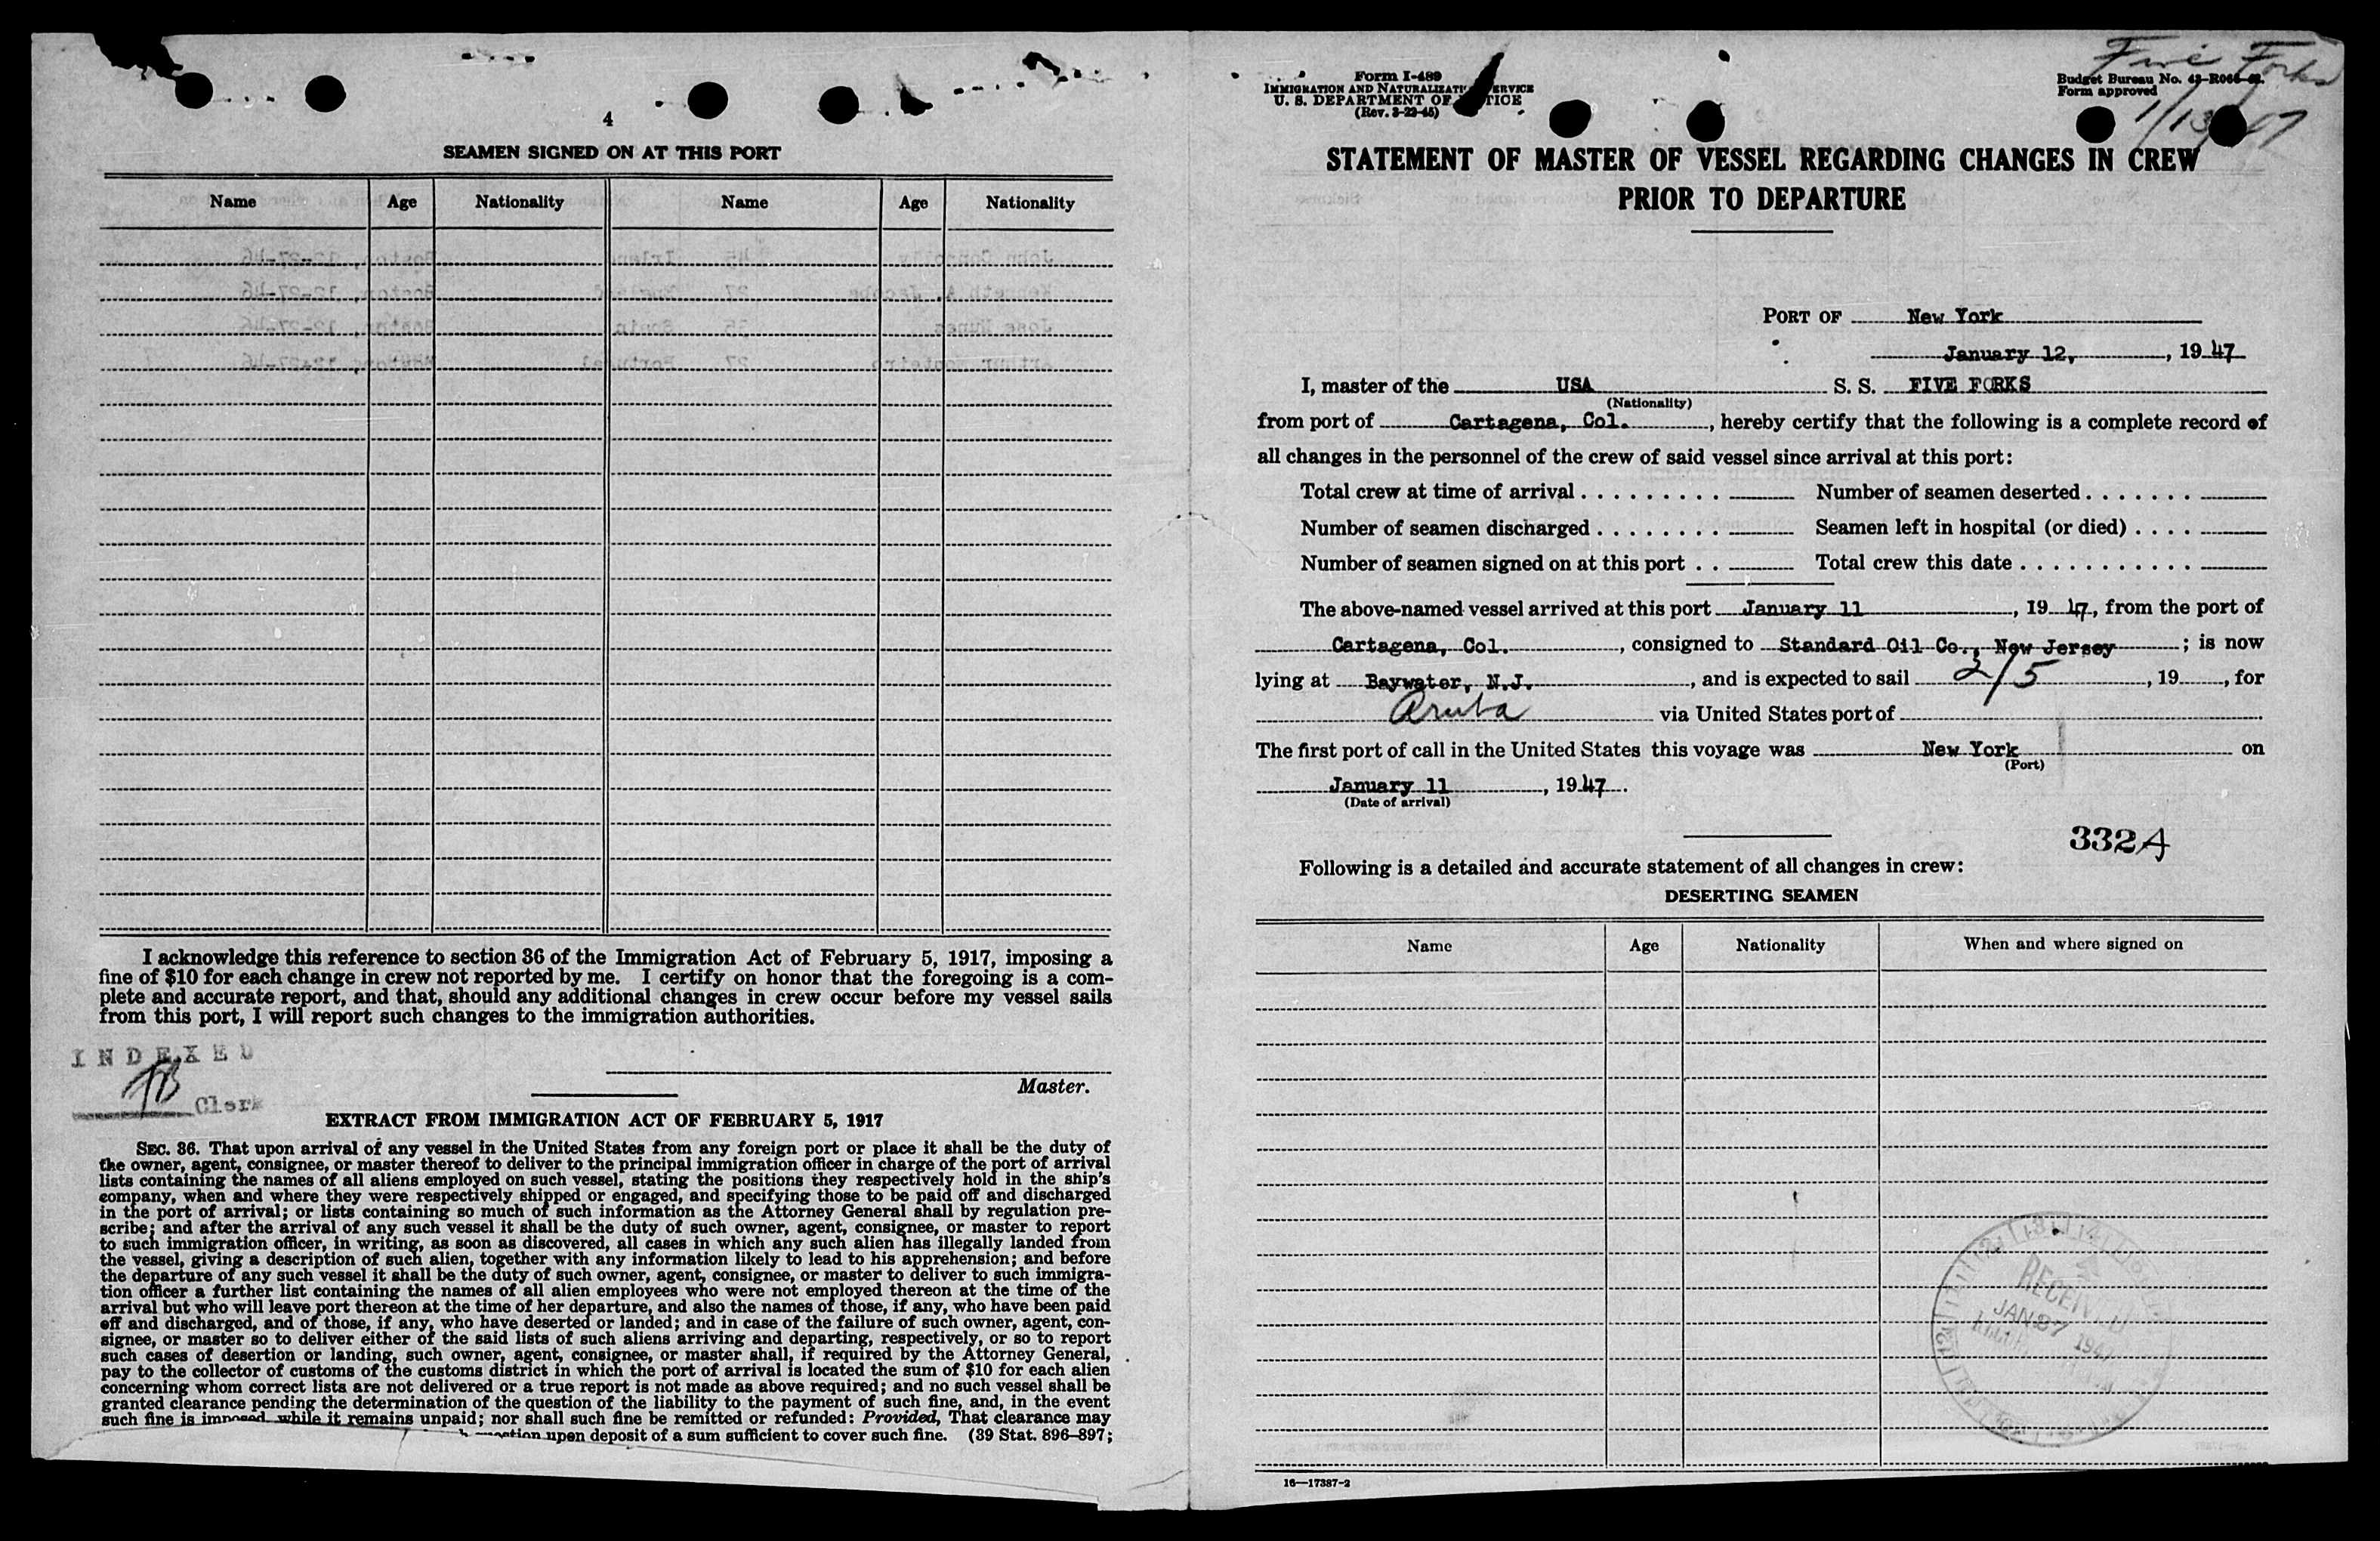 4
SEAMEN SIGNED ON AT THIS PORT
Name Age Nationality Name Age Nationality
I acknowledge this reference to section 36 of the Immigration Act of February 5, 1917, imposing a
fine of $10 for each change in crew not reported by me. I certify on honor that the foregoing is a com-
plete and accurate report, and that, should any additional changes in crew occur before my vessel sails
from this port, I will report such changes to the immigration authorities.
INDEXED
Clerk
Master.
EXTRACT FROM IMMIGRATION ACT OF FEBRUARY 5, 1917
SEC. 36. That upon arrival of any vessel in the United States from any foreign port or place it shall be the duty of
the owner, agent, consignee, or master thereof to deliver to the principal immigration officer in charge of the port of arrival
lists containing the names of all aliens employed on such vessel, stating the positions they respectively hold in the ship's
company, when and where they were respectively shipped or engaged, and specifying those to be paid off and discharged
in the port of arrival; or lists containing so much of such information as the Attorney General shall by regulation pre-
scribe; and after the arrival of any such vessel it shall be the duty of such owner, agent, consignee, or master to report
to such immigration officer, in writing, as soon as discovered, all cases in which any such alien has illegally landed from
the vessel, giving a description of such alien, together with any information likely to lead to his apprehension; and before
the departure of any such vessel it shall be the duty of such owner, agent, consignee, or master to deliver to such immigra-
tion officer a further list containing the names of all alien employees who were not employed thereon at the time of the
arrival but who will leave port thereon at the time of her departure, and also the names of those, if any, who have been paid
off and discharged, and of those, if any, who have deserted or landed; and in case of the failure of such owner, agent, con-
signee, or master so to deliver either of the said lists of such aliens arriving and departing, respectively, or so to report
such cases of desertion or landing, such owner, agent, consignee, or master shall, if required by the Attorney General,
pay to the collector of customs of the customs district in which the port of arrival is located the sum of $10 for each alien
concerning whom correct lists are not delivered or a true report is not made as above required; and no such vessel shall be
granted clearance pending the determination of the question of the liability to the payment of such fine, and, in the event
such fine is imposed, while it remains unpaid; nor shall such fine be remitted or refunded: Provided, That clearance may
upon deposit of a sum sufficient to cover such fine. (39 Stat. 896–897;
Five Forks
1/13/47
Form I-489
IMMIGRATION AND NATURALIZATION SERVICE
U. S. DEPARTMENT OF JUSTICE
(Rev. 3-23-45)
Budget Bureau No.
Form approved
STATEMENT OF MASTER OF VESSEL REGARDING CHANGES IN CREW
PRIOR TO DEPARTURE
PORT OF New York
January 12, , 19 47
I, master of the USA S. S. FIVE FORKS
(Nationality)
from port of Cartagena, Col. , hereby certify that the following is a complete record of
all changes in the personnel of the crew of said vessel since arrival at this port:
Total crew at time of arrival . . . . . . . . . . Number of seamen deserted . . . . . . .
Number of seamen discharged . . . . . . . . Seamen left in hospital (or died) . . . .
Number of seamen signed on at this port . . Total crew this date . . . . . . . . . . . .
The above-named vessel arrived at this port January 11 , 19 47, from the port of
Cartagena, Col. , consigned to Standard Oil Co., New Jersey ; is now
lying at Baywater, N.J. , and is expected to sail 2/5 , 19 , for
Aruba via United States port of
The first port of call in the United States this voyage was New York on
(Port)
January 11 , 1947 .
(Date of arrival)
332A
Following is a detailed and accurate statement of all changes in crew:
DESERTING SEAMEN
Name Age Nationality When and where signed on
RECEIVED
1947
16—17387-2